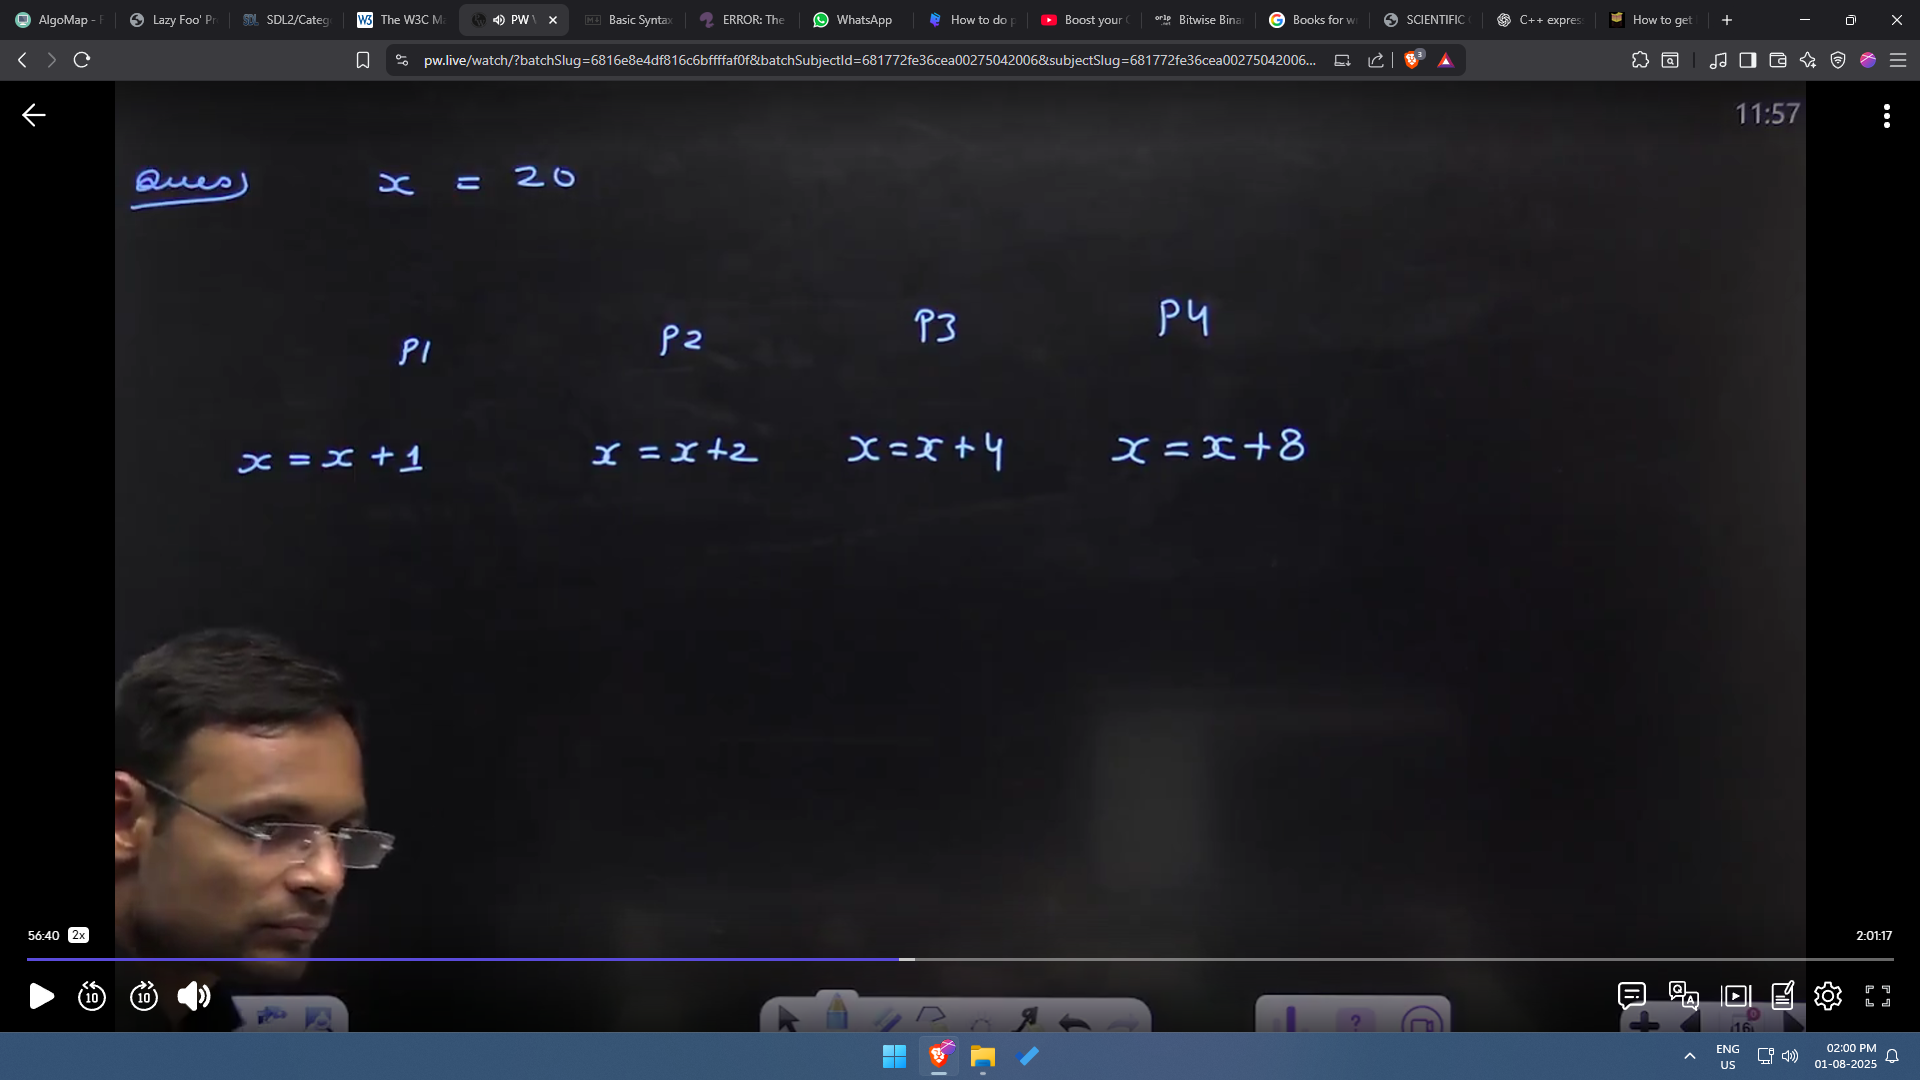 AlgoMap - F
Lazy Foo' Pr
SDL2/Categ
The W3C Ma
PW \
Basic Syntax
ERROR: The
WhatsApp
How to do p
Boost your C
Bitwise Bina
Books for wi
SCIENTIFIC C
C++ expres
How to get
pw.live/watch/?batchSlug=6816e8e4df816c6bffffaf0f&batchSubjectId=681772fe36cea00275042006&subjectSlug=681772fe36cea00275042006...
3
11:57
Ques) x = 20
P1 P2 P3 P4
x = x + 1 x = x+2 x = x + 4 x = x + 8
56:40 2x 2:01:17
10 10
Q A
?
16
ENG
US
02:00 PM
01-08-2025